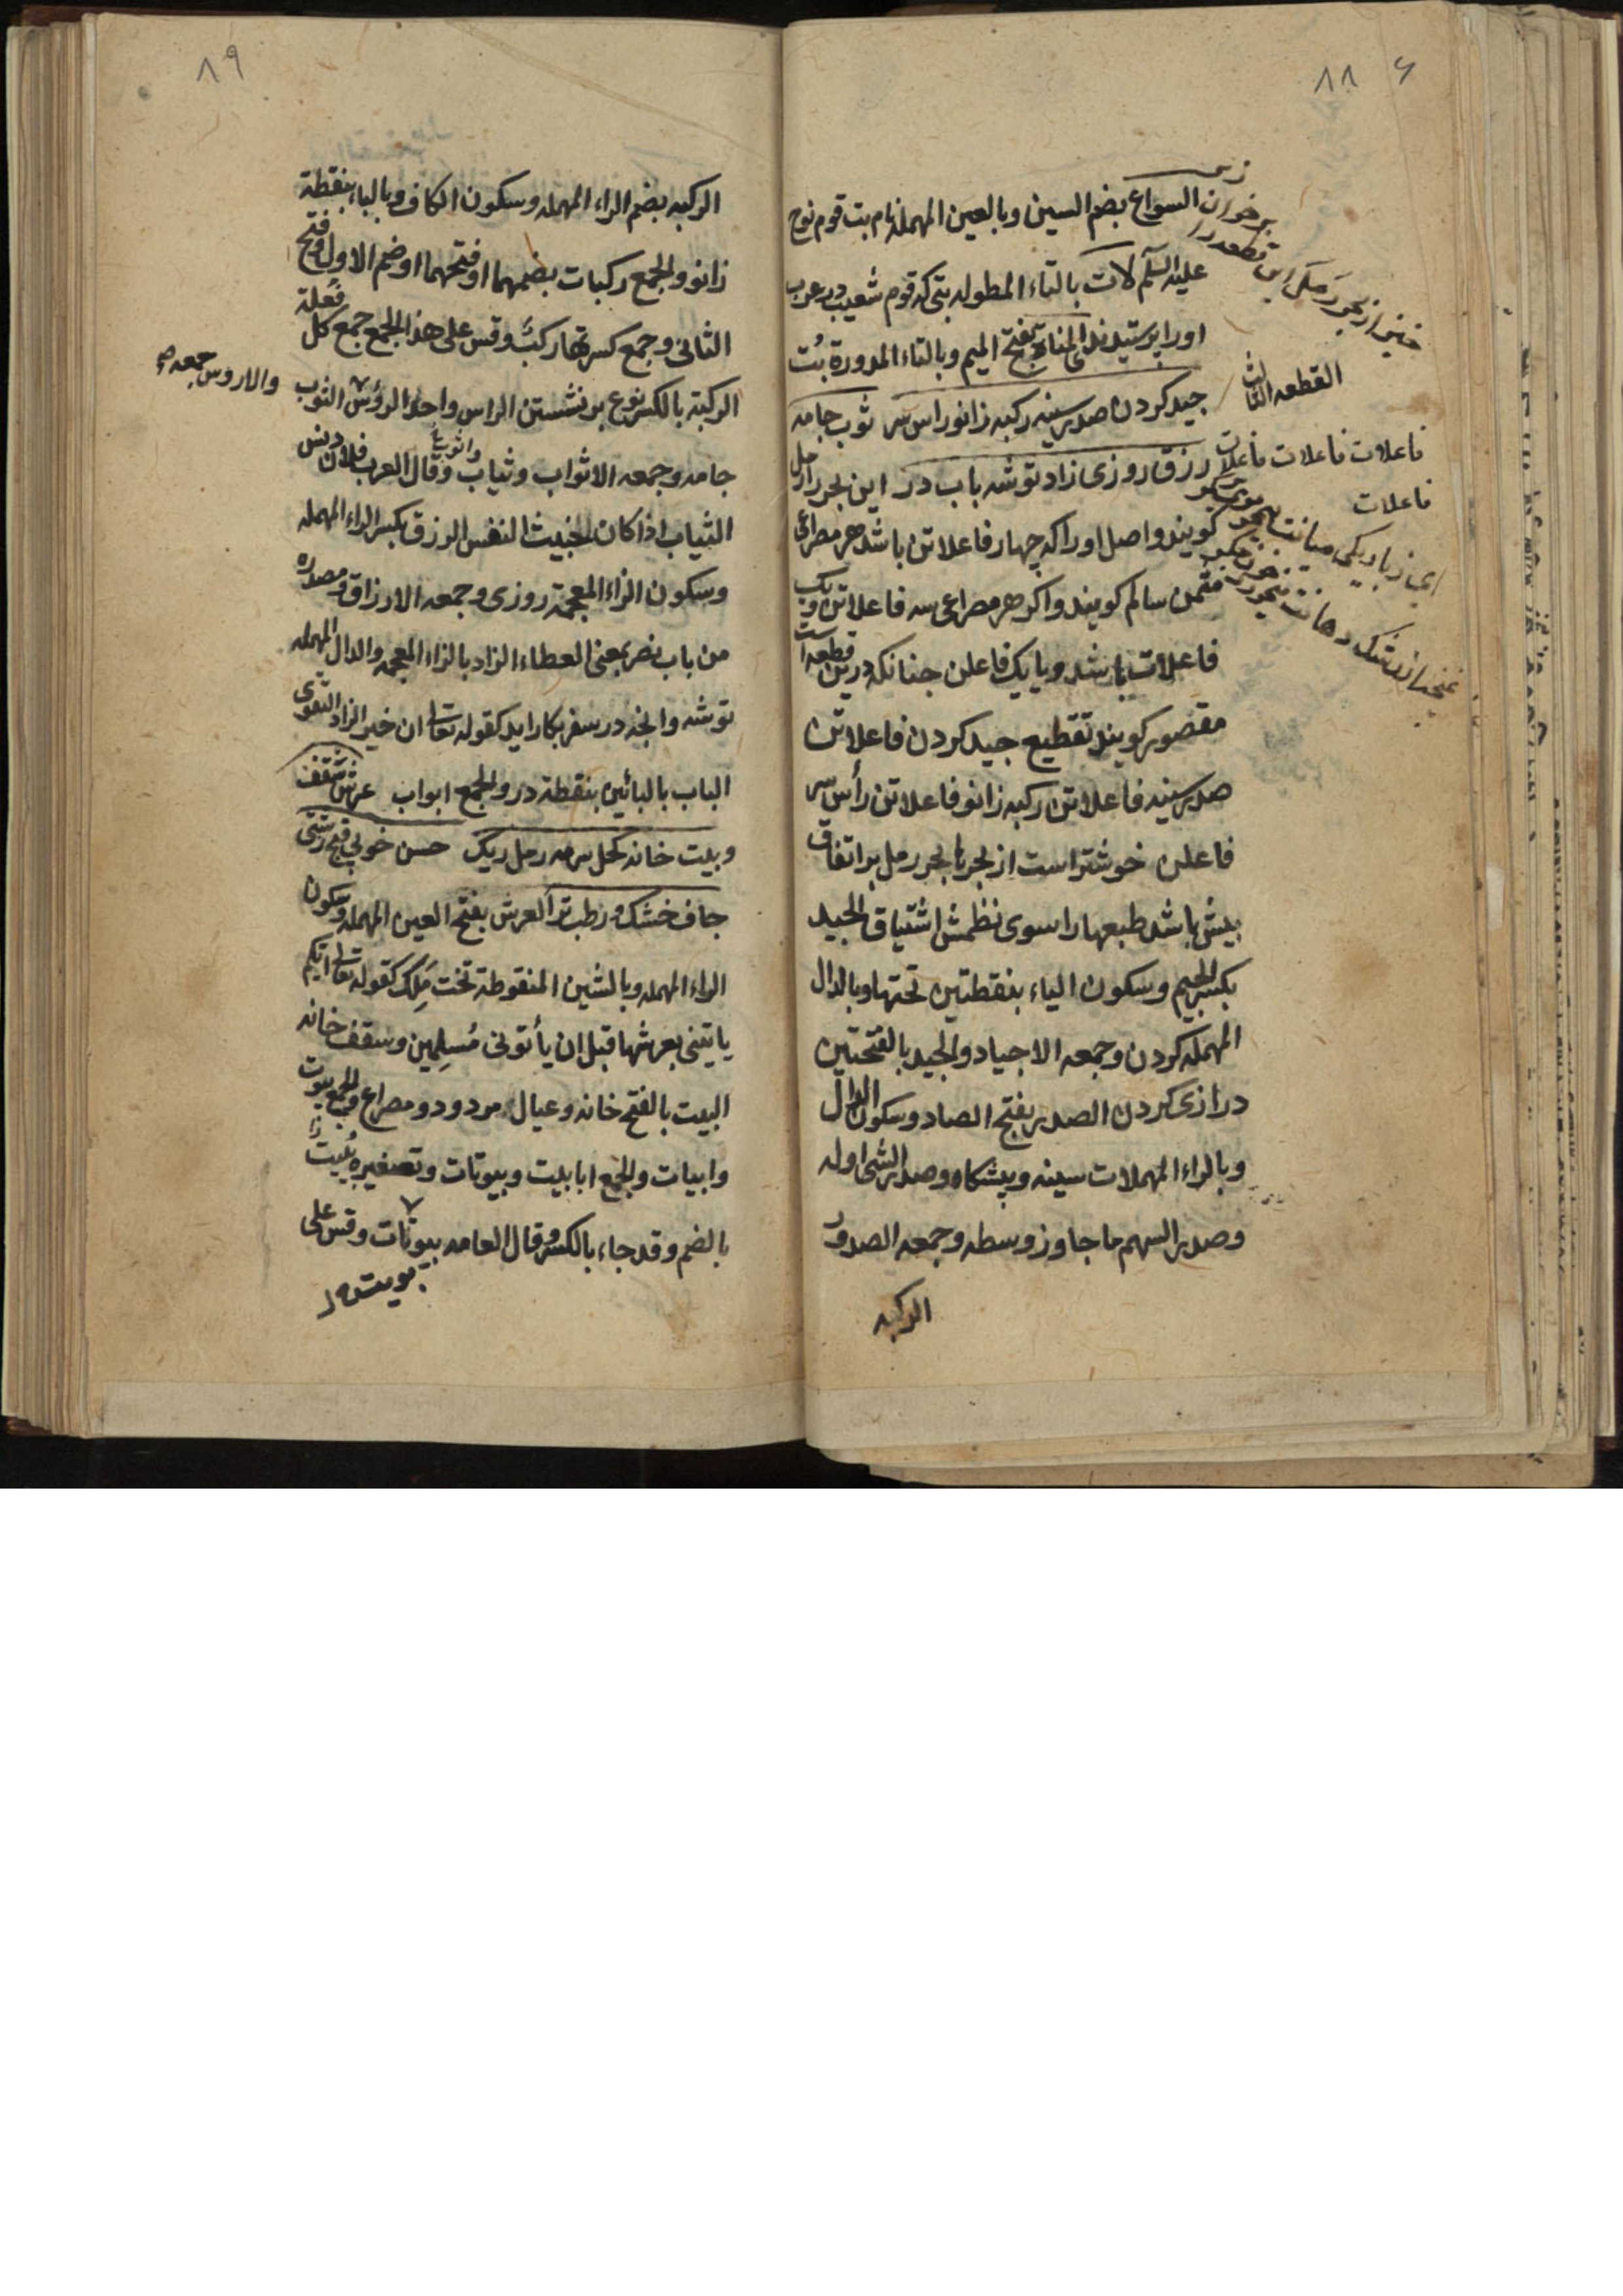 ٨٨
السواع بضم السين وبالعين المهملة نام بت قوم نوح
عليه السلم لات بالتاء المطوله بتى كه قوم شعيب در عرب
اورا پرستيدندى المناة بفتح الميم وبالتاء المدورة بُت
القطعه الثالث
جيد كردن صدر سينه ركبه زانو راس سر ثوب جامه
فاعلات فاعلات فاعلات
فاعلات
رزق روزى زاد توشه باب در اين بحر را رمل
كويند واصل او را كه چهار فاعلاتن باشد هر مصراعى
مثمن سالم كويند واكر هر مصراعى سه فاعلاتن ويك
فاعلات باشد ويا يك فاعلن چنانكه درين قطعه است
مقصور كويند تقطيع جيد كردن فاعلاتن
صدر سينه فاعلاتن ركبه زانو فاعلاتن رأس سر
فاعلن خوشتر است از بحرها بحر رمل بر اتفاق
بيش باشد طبعها را سوى نظمش اشتياق الجيد
بكسر الجيم وسكون الياء بنقطتين تحتها وبالدال
المهمله كردن وجمعه الاجياد والجيد بالفتحتين
درازى كردن الصدر بفتح الصاد وسكون الدال
وبالراء المهملات سينه وپيشكاه وصدر الشى اوله
وصدر السهم ما جاوز وسطه وجمعه الصدور
الركبه
٨٩
الركبه بضم الراء المهمله وسكون الكاف وبالباء بنقطة
زانو والجمع ركبات بضمهما او فتحهما او ضم الاول وفتح
الثانى وجمع كسرتها ركبٌ وقس على هذا الجمع جمع كل فُعلة
الركبة بالكسر نوع بر نشستن الراس واحد الرؤس الثوب
والاروس جمعه صح
جامه وجمعه الاثواب وثياب واثوب وقال العرب فلان دنس
الثياب اذا كان الخبيث النفس الرزق بكسر الراء المهمله
وسكون الزاء المعجمة روزى وجمعه الارزاق ومصدره
من باب نصر بمعنى العطاء الزاد بالزاء المعجمه والدال المهمله
توشه وانچه در سفر بكار ايد كقوله تعالى ان خير الزاد التقوى
الباب بالبائين بنقطة در والجمع ابواب عرش سقف
وبيت خانه كحل سرمه رمل ريك حسن خوبى قبح زشتى
جاف خشك ورطب تر العرش بفتح العين المهمله وسكون
الراء المهمله وبالشين المنقوطة تخت مَلِك كقوله تعالى ايكم
ياتينى بعرشها قبل ان يأتونى مُسلِمين وسقف خانه
البيت بالفتح خانه وعيال مرد ودو مصراع والجمع بيوت
وابيات والجمع ابابيت وبيوتات وتصغيره بُيَيت
بالضم وقد جاء بالكسر وقال العامه بيوتات وقس على
بويت